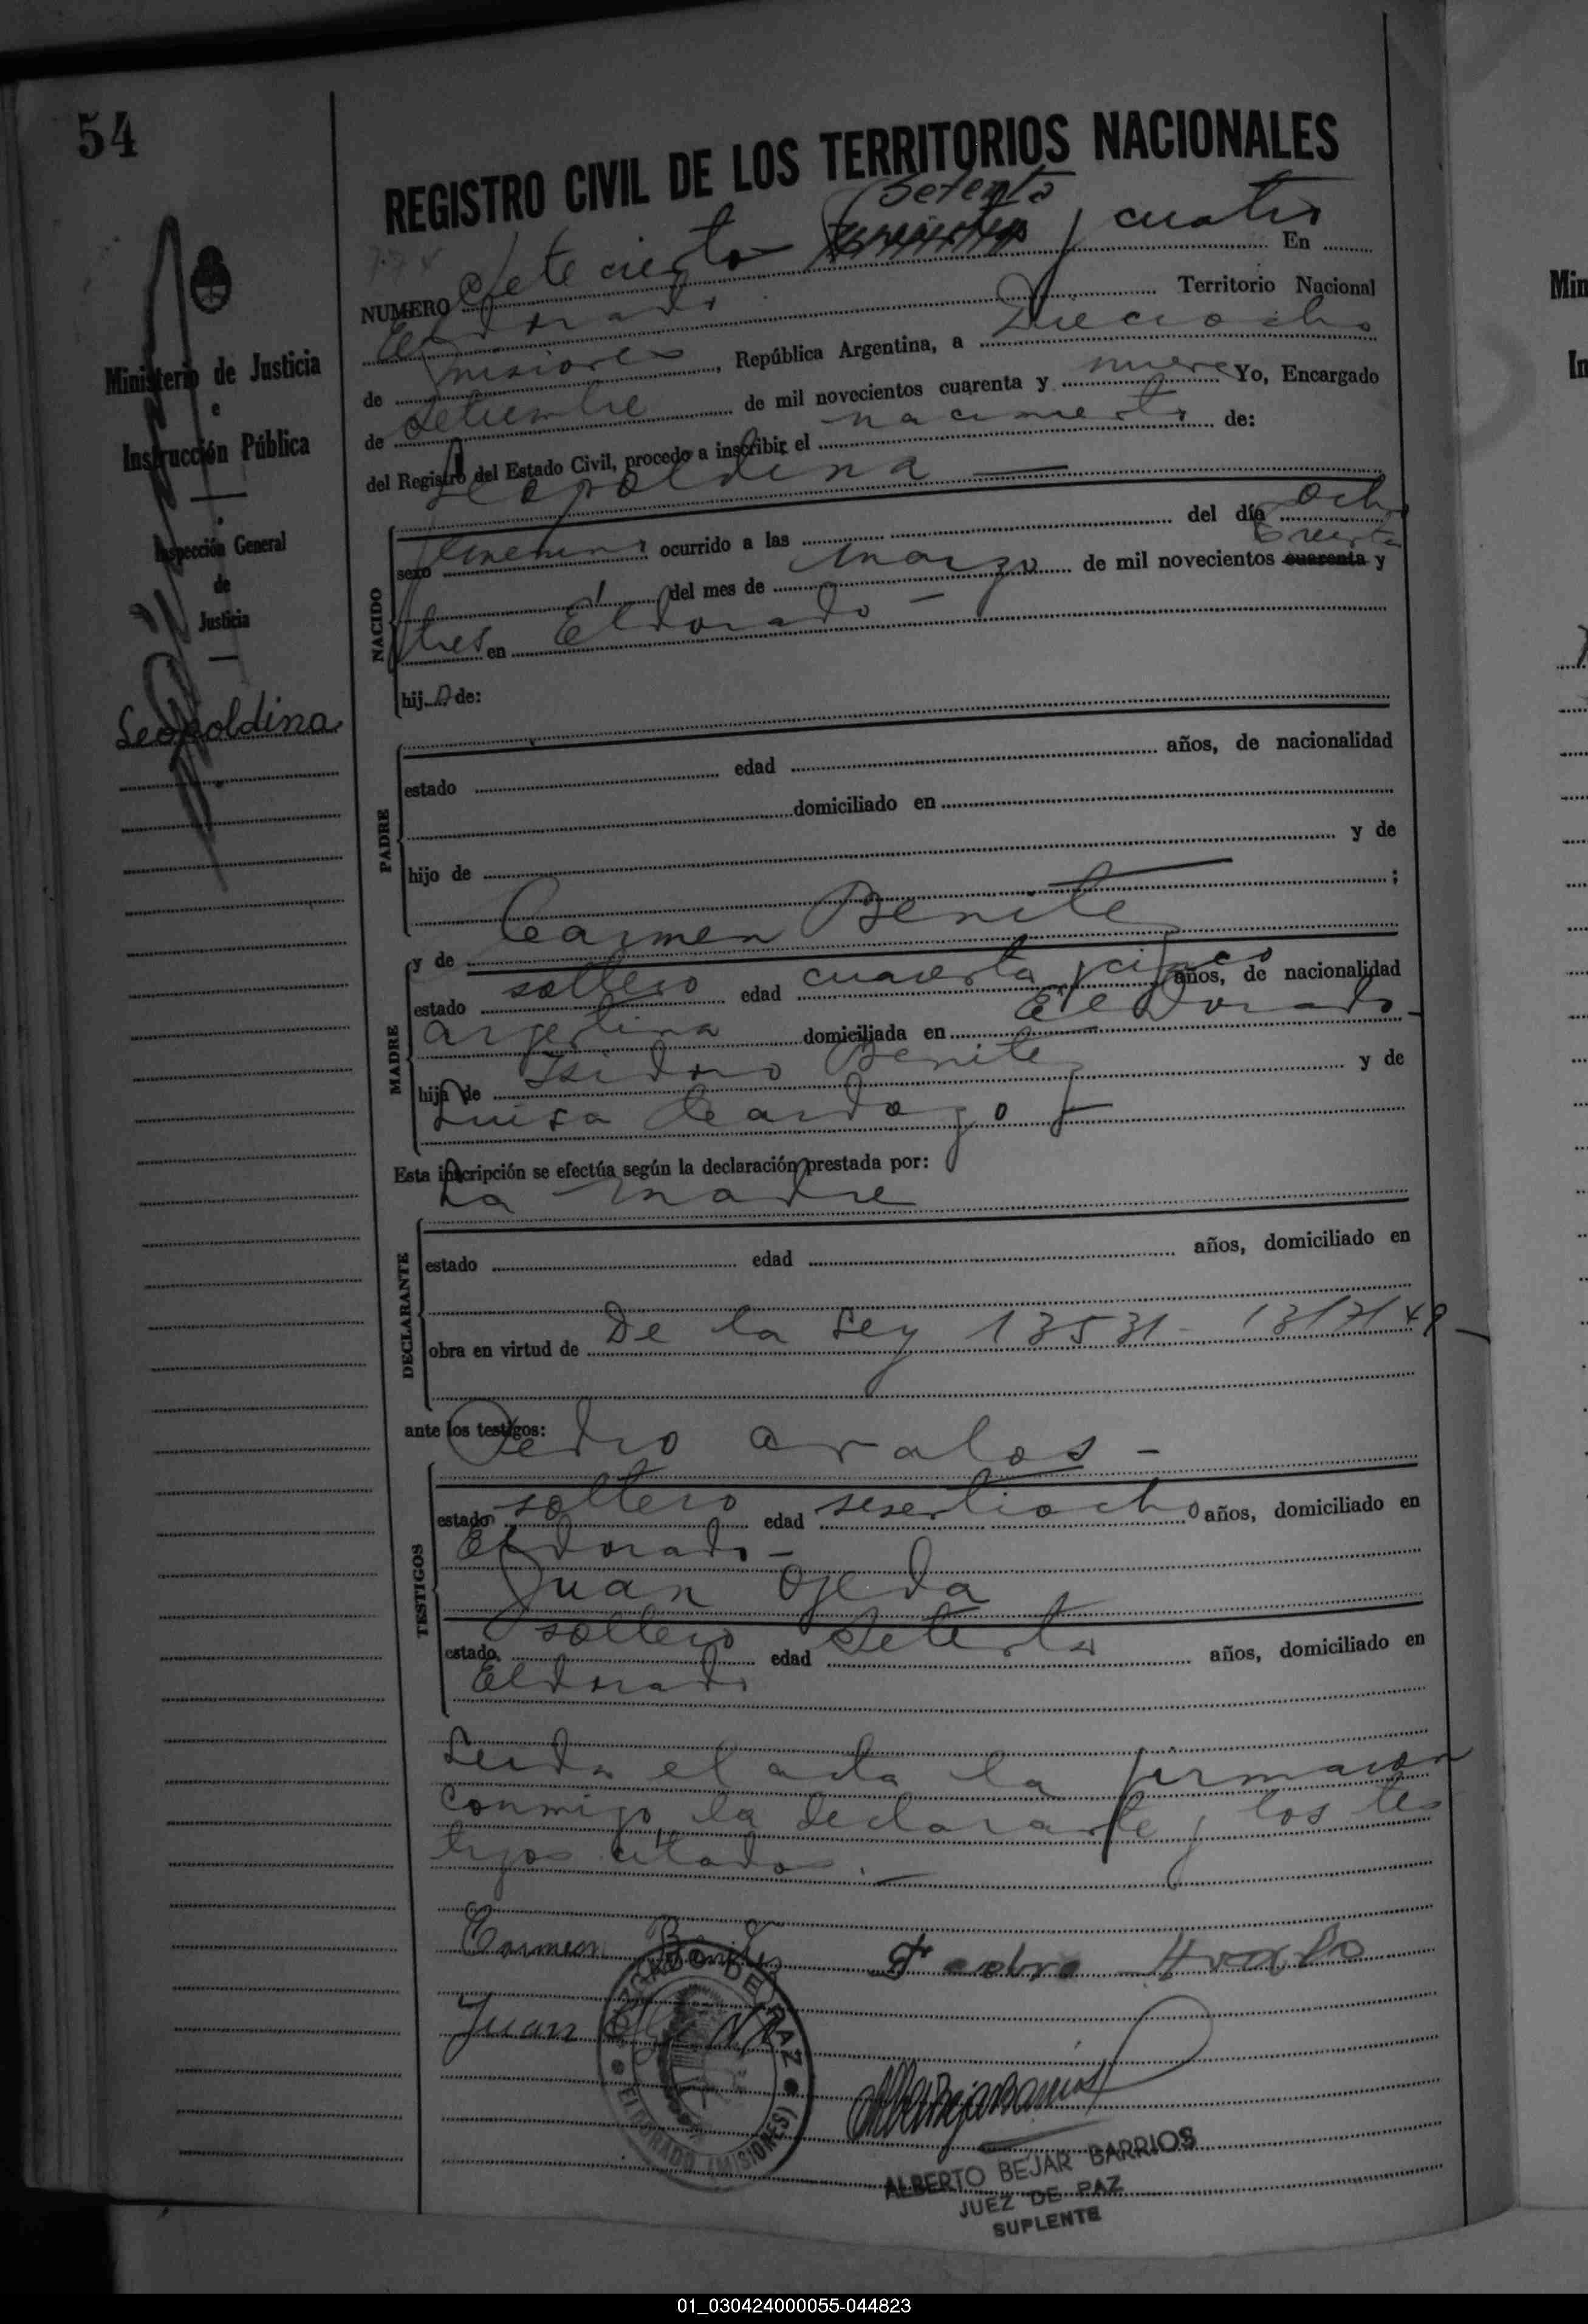 54
REGISTRO CIVIL DE LOS TERRITORIOS NACIONALES
Setenta
774
NUMERO Sete ciento y cuatro En
Eldorado Territorio Nacional
de Misiones, República Argentina, a Dieciocho
de Setiembre de mil novecientos cuarenta y nueve Yo, Encargado
del Registro del Estado Civil, procedo a inscribir el nacimiento de:
Leopoldina
sexo femenino ocurrido a las del día ocho
treinta
del mes de marzo de mil novecientos cuarenta y
tres en Eldorado -
hija de:
NACIDO
estado edad años, de nacionalidad
domiciliado en
hijo de y de
;
PADRE
y de Carmen Benitez
estado soltero edad cuarenta y cinco años, de nacionalidad
argentina domiciliada en El Dorado -
hija de Isidoro Benitez y de
Luisa Cardozo
MADRE
Esta inscripción se efectúa según la declaración prestada por:
La madre
estado edad años, domiciliado en
obra en virtud de De la Ley 13531 - 13/7/49 -
DECLARANTE
ante los testigos:
Pedro Avalos -
estado soltero edad sesentiocho años, domiciliado en
Eldorado -
Juan Ojeda
estado soltero edad Setenta años, domiciliado en
Eldorado
TESTIGOS
Leida el acta la firmaron
conmigo la declarante y los tes
tigos citados . -
Carmen Benitez Pedro Avalo
Juan Ojeda
JUZGADO DE PAZ
ELDORADO (MISIONES)
ALBERTO BEJAR BARRIOS
JUEZ DE PAZ
SUPLENTE
Ministerio de Justicia
e
Instrucción Pública
Inspección General
de
Justicia
Leopoldina
Min
In
01_030424000055-044823